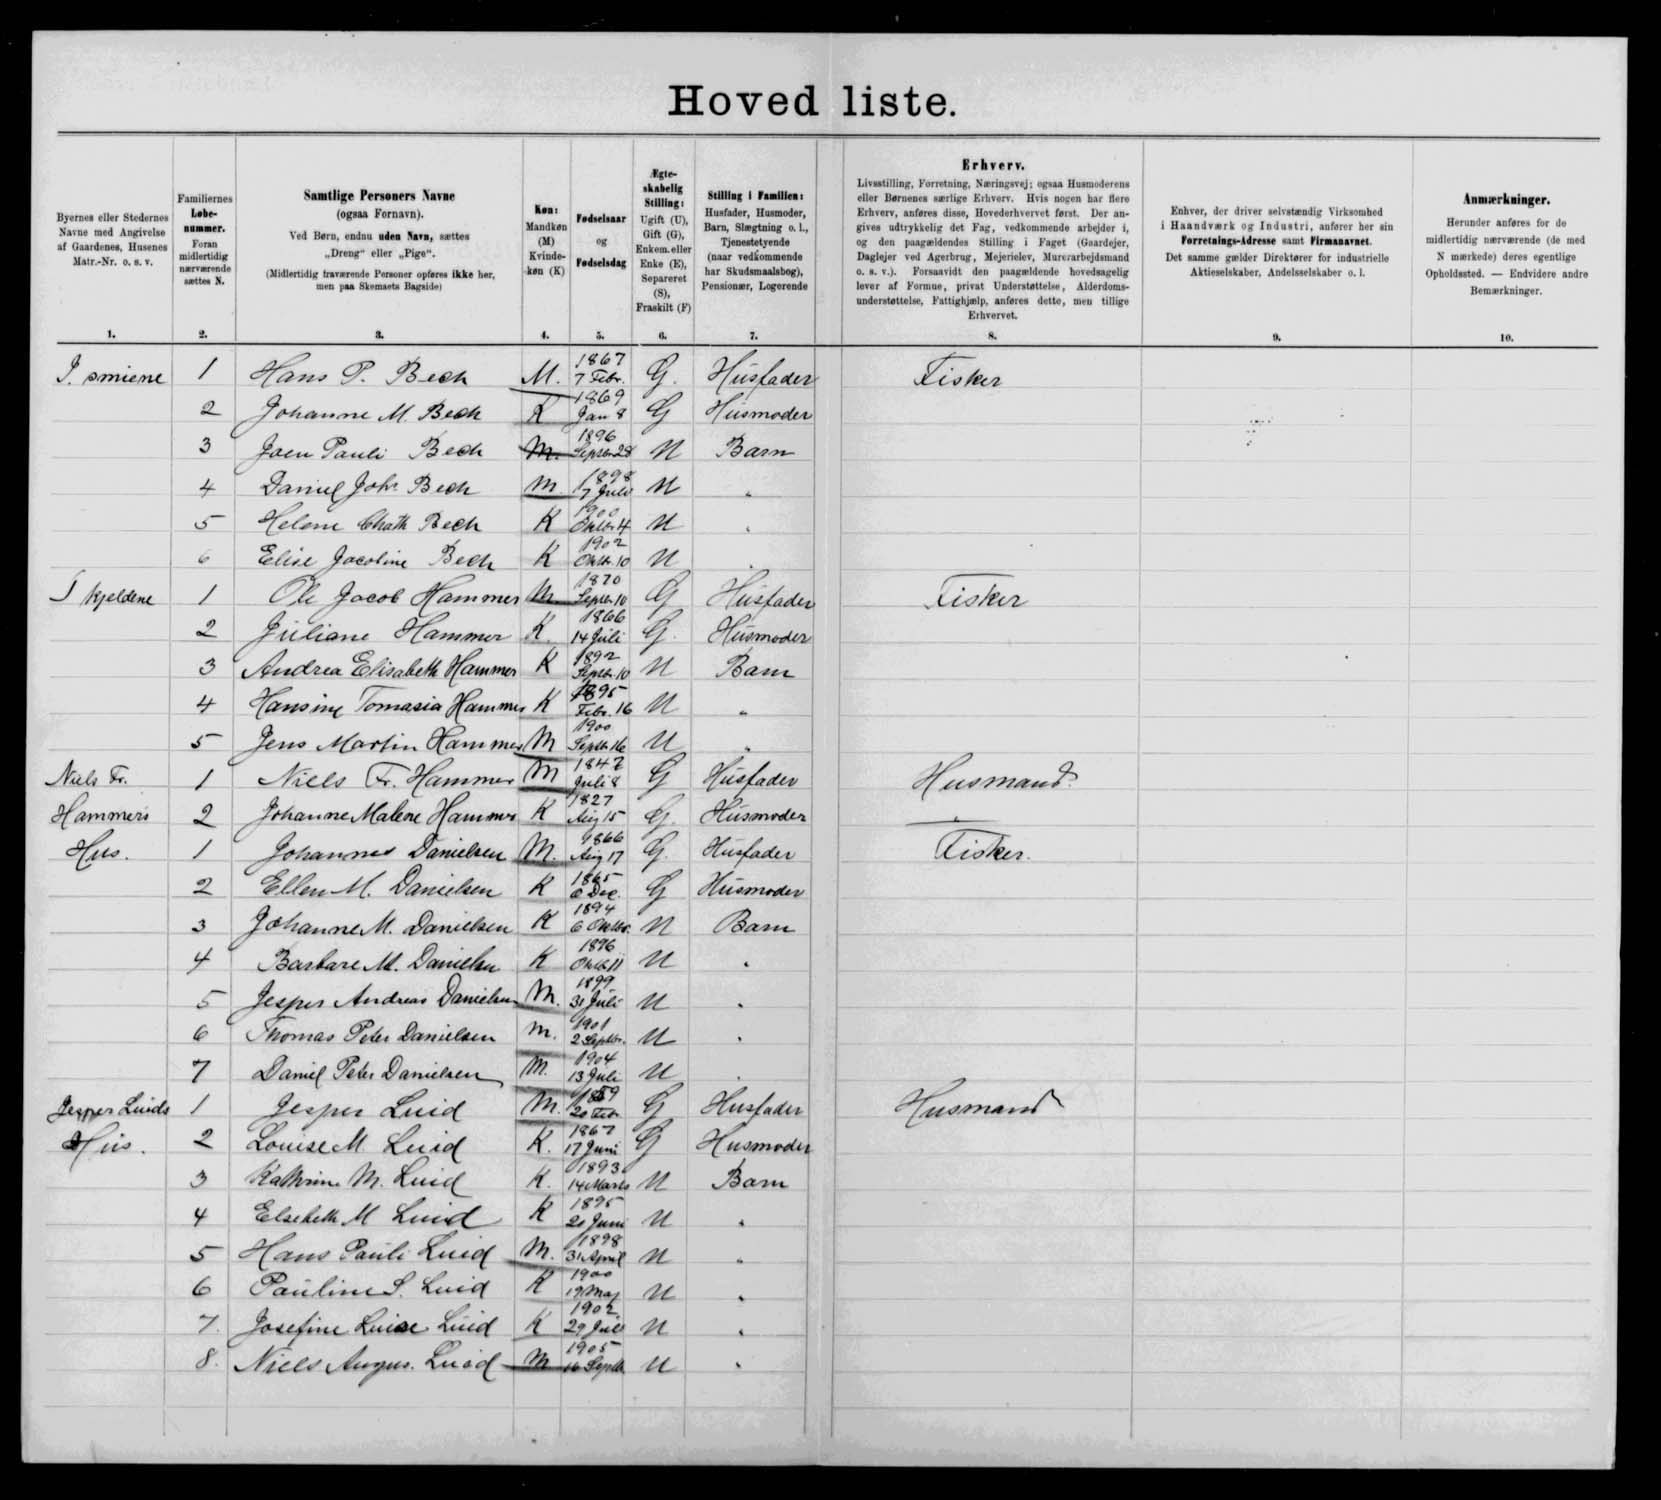 Hovedliste.
Byernes eller Stedernes Navne med Angivelse af Gaardenes, Husenes Matr.-Nr. o. s. v.
Familiernes Løbe-nummer. Foran midlertidig nærværende sættes N.
Samtlige Personers Navne (ogsaa Fornavn). Ved Børn, endnu uden Navn, sættes „Dreng" eller „Pige". (Midlertidig fraværende Personer opføres ikke her, men paa Skemaets Bagside)
Køn: Mandkøn (M) Kvinde-køn (K)
Fødselsaar og Fødselsdag
Ægte-skabelig Stilling: Ugift (U), Gift (G), Enkem. eller Enke (E), Separeret (S), Fraskilt (F)
Stilling i Familien: Husfader, Husmoder, Barn, Slægtning o. l., Tjenestetyende (naar vedkommende har Skudsmaalsbog), Pensionær, Logerende
Erhverv. Livsstilling, Forretning, Næringsvej; ogsaa Husmoderens eller Børnenes særlige Erhverv. Hvis nogen har flere Erhverv, anføres disse, Hovederhvervet først. Der angives udtrykkelig det Fag, vedkommende arbejder i, og den paagældendes Stilling i Faget (Gaardejer, Daglejer ved Agerbrug, Mejerielev, Murerarbejdsmand o. s. v.). Forsaavidt den paagældende hovedsagelig lever af Formue, privat Understøttelse, Alderdoms-understøttelse, Fattighjælp, anføres dette, men tillige Erhvervet.
Enhver, der driver selvstændig Virksomhed i Haandværk og Industri, anfører her sin Forretnings-Adresse samt Firmanavnet. Det samme gælder Direktører for industrielle Aktieselskaber, Andelsselskaber o. l.
Anmærkninger. Herunder anføres for de midlertidig nærværende (de med N mærkede) deres egentlige Opholdssted. — Endvidere andre Bemærkninger.
1. 2. 3. 4. 5. 6. 7. 8. 9. 10.
I. smiene 1 Hans P. Bech M. 1867 7 Febr. G. Husfader Fisker
2 Johanne M. Bech K 1869 Jan 8 G Husmoder
3 Joen Pauli Bech M. 1896 Septbr 28 U Barn
4 Daniel Joh. Bech M. 1898 7 Juli U "
5 Helene Bech K 1900 Oktbr 4 U "
6 Elise Jacobine Bech K 1902 Oktb. 10 U "
I kjeldene 1 Ole Jacob Hammer M. 1870 Septbr 10 G Husfader Fisker
2 Juliane Hammer K. 1866 14 Juli G. Husmoder
3 Andrea Elisabeth Hammer K 1892 Septbr. 10 U Barn
4 Hansine Tomasia Hammer K 1895 Febr. 16 U "
5 Jens Martin Hammer M 1900 Septb. 16 U "
Niels Fr. 1 Niels Fr. Hammer M Juli 8 G Husfader Husmand
Hammers 2 Johanne Malene Hammer K 1827 Aug 15 G. Husmoder
Hus. 1 Johannes Danielsen M. 1866 Aug 17 G. Husfader Fisker.
2 Ellen M. Danielsen K 1865 Dec. G Husmoder
3 Johanne M. Danielsen K 1894 6 Oktbr. U Barn
4 Barbare M. Danielsen K 1896 Oktb 11 U "
5 Jesper Andreas Danielsen M. 1899 31 Juli U "
6 Thomas Peter Danielsen M. 1901 2 Septbr. U "
7 Daniel Peter Danielsen M. 1904 13 Juli U "
Jesper Luids 1 Jesper Luid M. 1859 20 Febr G Husfader Husmand
Hus. 2 Louise M. Luid K. 1867 17 Juni G Husmoder
3 Kathrine M. Luid K. 1893 14 Marts U Barn
4 Elsebeth M Luid K 1895 20 Juni U "
5 Hans Pauli Luid M. 1898 31 April U "
6 Pauline S. Luid K 1900 19 Maj U "
7. Josefine Luise Luid K 1902 29 Juli U "
8. Niels Augus. Luid M 1905 16 Septb. U "